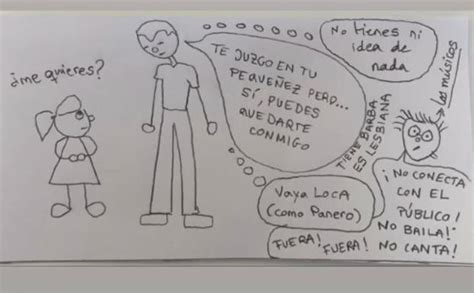 ¿me quieres?
TE JUZGO EN TU
PEQUEÑEZ PERO...
SÍ, PUEDES
QUEDARTE
CONMIGO
No tienes ni
idea de
nada
los músicos
TIENE BARBA
ES LESBIANA
Vaya Loca
(como Panero)
¡NO CONECTA
CON EL
PÚBLICO!
NO BAILA!
NO CANTA!
FUERA!
FUERA!